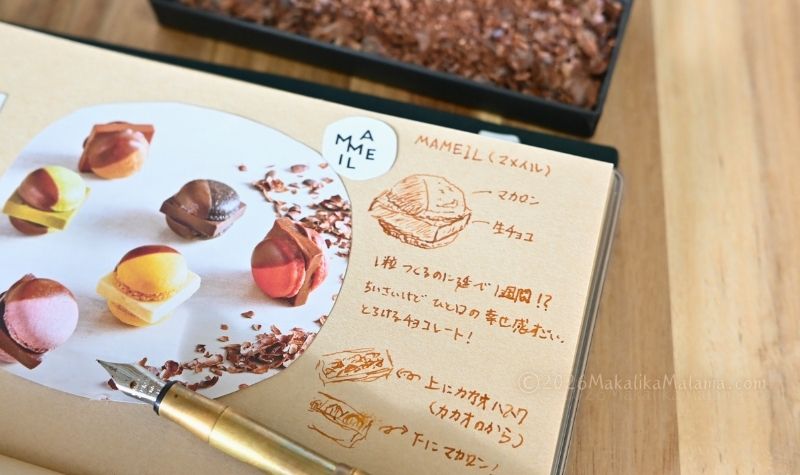 A
MME
IL
MAMEIL(マメイル)
マカロン
生チョコ
1粒 つくるのに延べ1週間!?
ちいさいけど ひと口の幸せ感すごい。
とろけるチョコレート!
上にカカオハスク
(カカオのから)
下にマカロン!
©2026MakalikaMalama.com